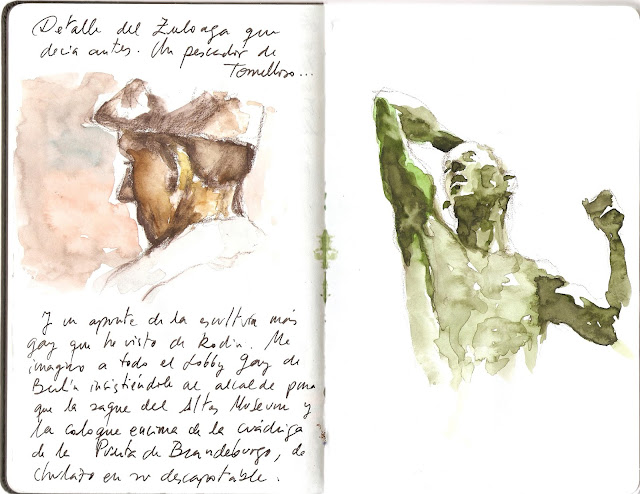 Detalle del Zuloaga que
decía antes. Un pescador de
Tomelloso...
Y un apunte de la escultura más
gay que he visto de Rodin. Me
imagino a todo el Lobby Gay de
Berlín insistiéndole al alcalde para
que la saque del Altes Museum y
la coloque encima de la cuádriga
de la Puerta de Brandeburgo, de
chulazo en su descapotable.